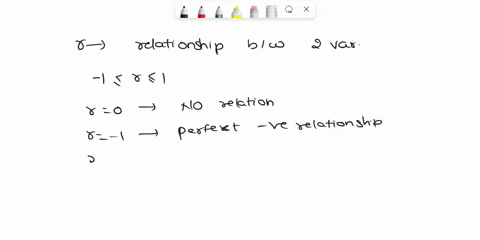 r → relationship b/w 2 var.
-1 ≤ r ≤ 1
r = 0 → No relation
r = -1 → perfekt -ve relationship